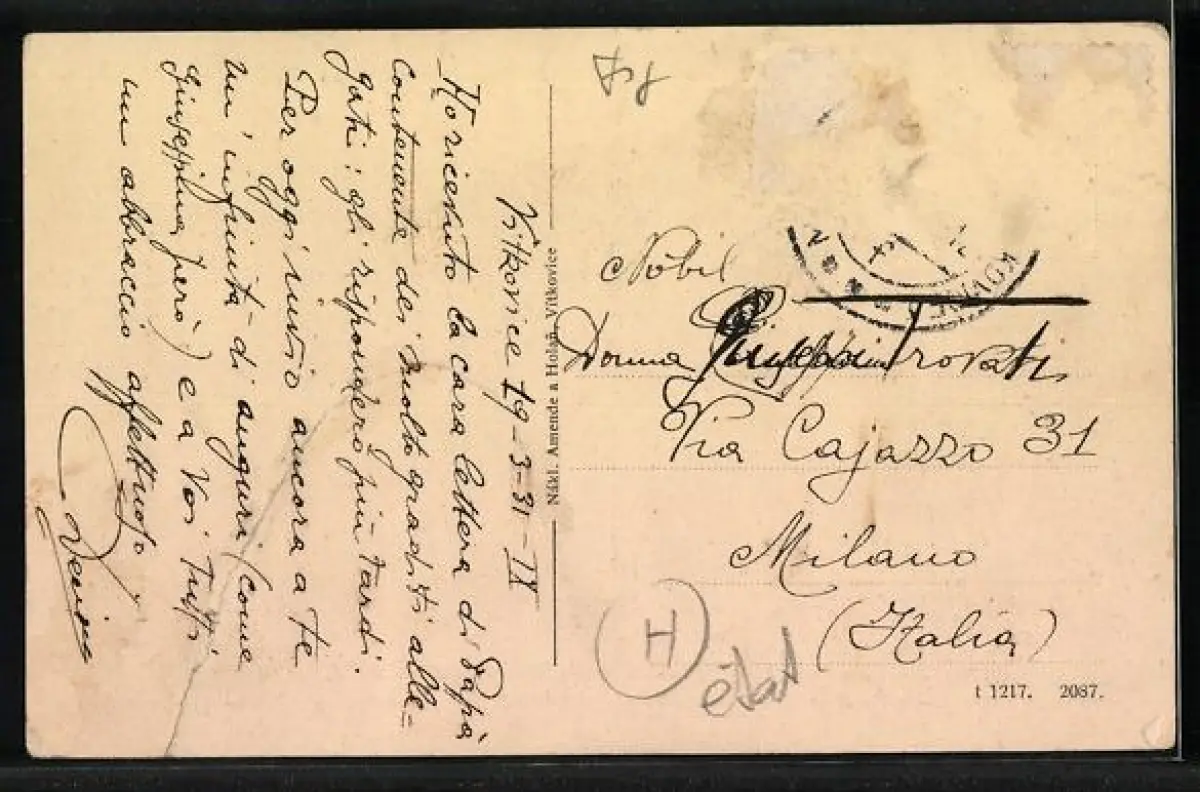 Vitkovice 19-3-31-IX
Ho ricevuto la cara lettera di Papà
contenente dei molto graditi alle=
gati: gli risponderò più tardi.
Per oggi invio ancora a te
un'infinità di auguri (come
Giuseppina però) e a Voi Tutti
un abbraccio affettuoso
Nákl. Amende a Holaň, Vítkovice
Nobil
Donna Giuseppina Provasi
Via Cajazzo 31
Milano
(Italia)
H
état
t 1217. 2087.